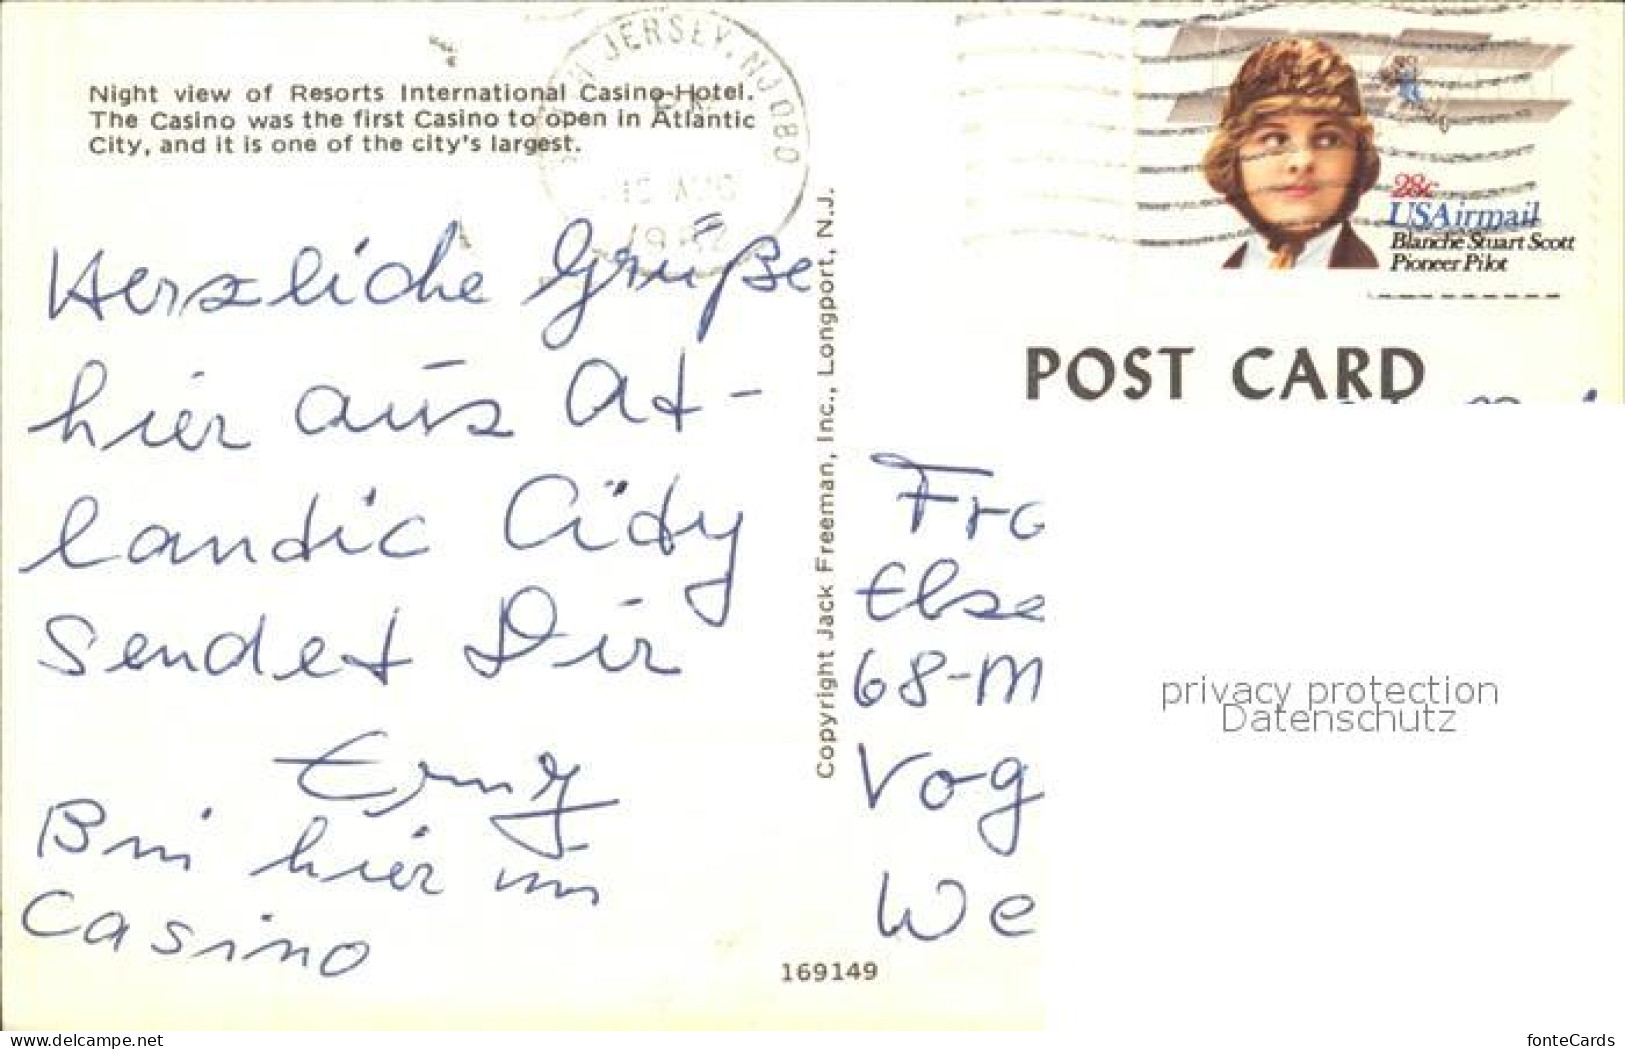 Night view of Resorts International Casino-Hotel.
The Casino was the first Casino to open in Atlantic
City, and it is one of the city's largest.
JERSEY, NJ 080
15 AUG
1982
28c
USAirmail
Blanche Stuart Scott
Pioneer Pilot
POST CARD
Herzliche Grüße
hier aus At-
landic City
sendet Dir
Bin hier im
Casino
Copyright Jack Freeman, Inc., Longport, N.J.
Fra
Else
68-M
Vog
We
privacy protection
Datenschutz
169149
www.delcampe.net
fonteCards